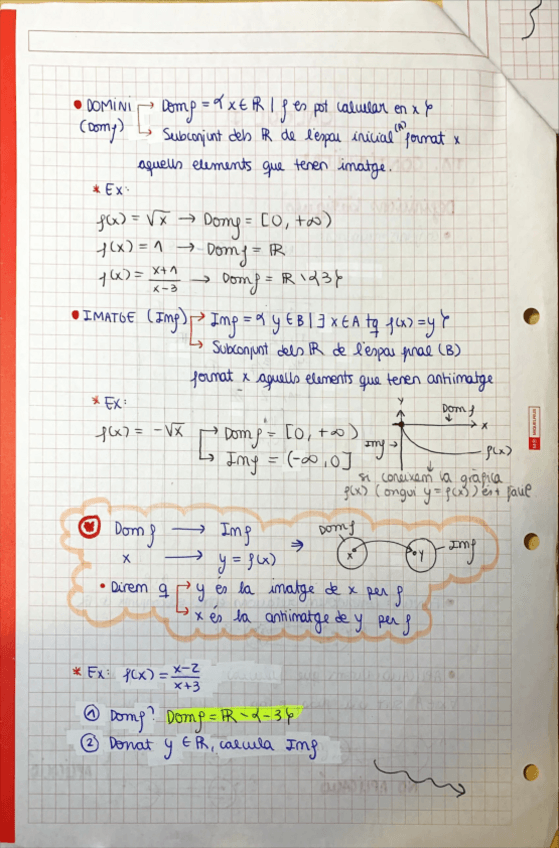 • DOMINI → Domf = { x ∈ ℝ | f es pot calcular en x }
(Domf) → Subconjunt dels ℝ de l'espai inicial (A) format x
aquells elements que tenen imatge.
* Ex:
f(x) = √x → Domf = [0, +∞)
f(x) = 1 → Domf = ℝ
f(x) = x+1/x-3 → Domf = ℝ \ {3}
• IMATGE (Imf) → Imf = { y ∈ B | ∃ x ∈ A tq f(x) = y }
→ Subconjunt dels ℝ de l'espai final (B)
format x aquells elements que tenen antiimatge
* Ex:
f(x) = -√x → Domf = [0, +∞)
→ Imf = (-∞, 0]
y
Domf
x
Imf →
f(x)
si coneixem la gràfica
f(x) (ongui y = f(x)) és + fàcil
Domf → Imf ⇒ Domf x y Imf
x → y = f(x)
• Direm q → y és la imatge de x per f
→ x és la antiimatge de y per f
* Ex: f(x) = x-2/x+3
① Domf? Domf = ℝ \ {-3}
② Donat y ∈ ℝ, calcula Imf